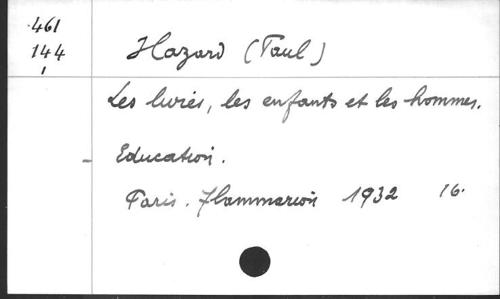 461
144
1
Hazard (Paul)
Les livres, les enfants et les hommes.
- Education.
Paris. Flammarion 1932 16.